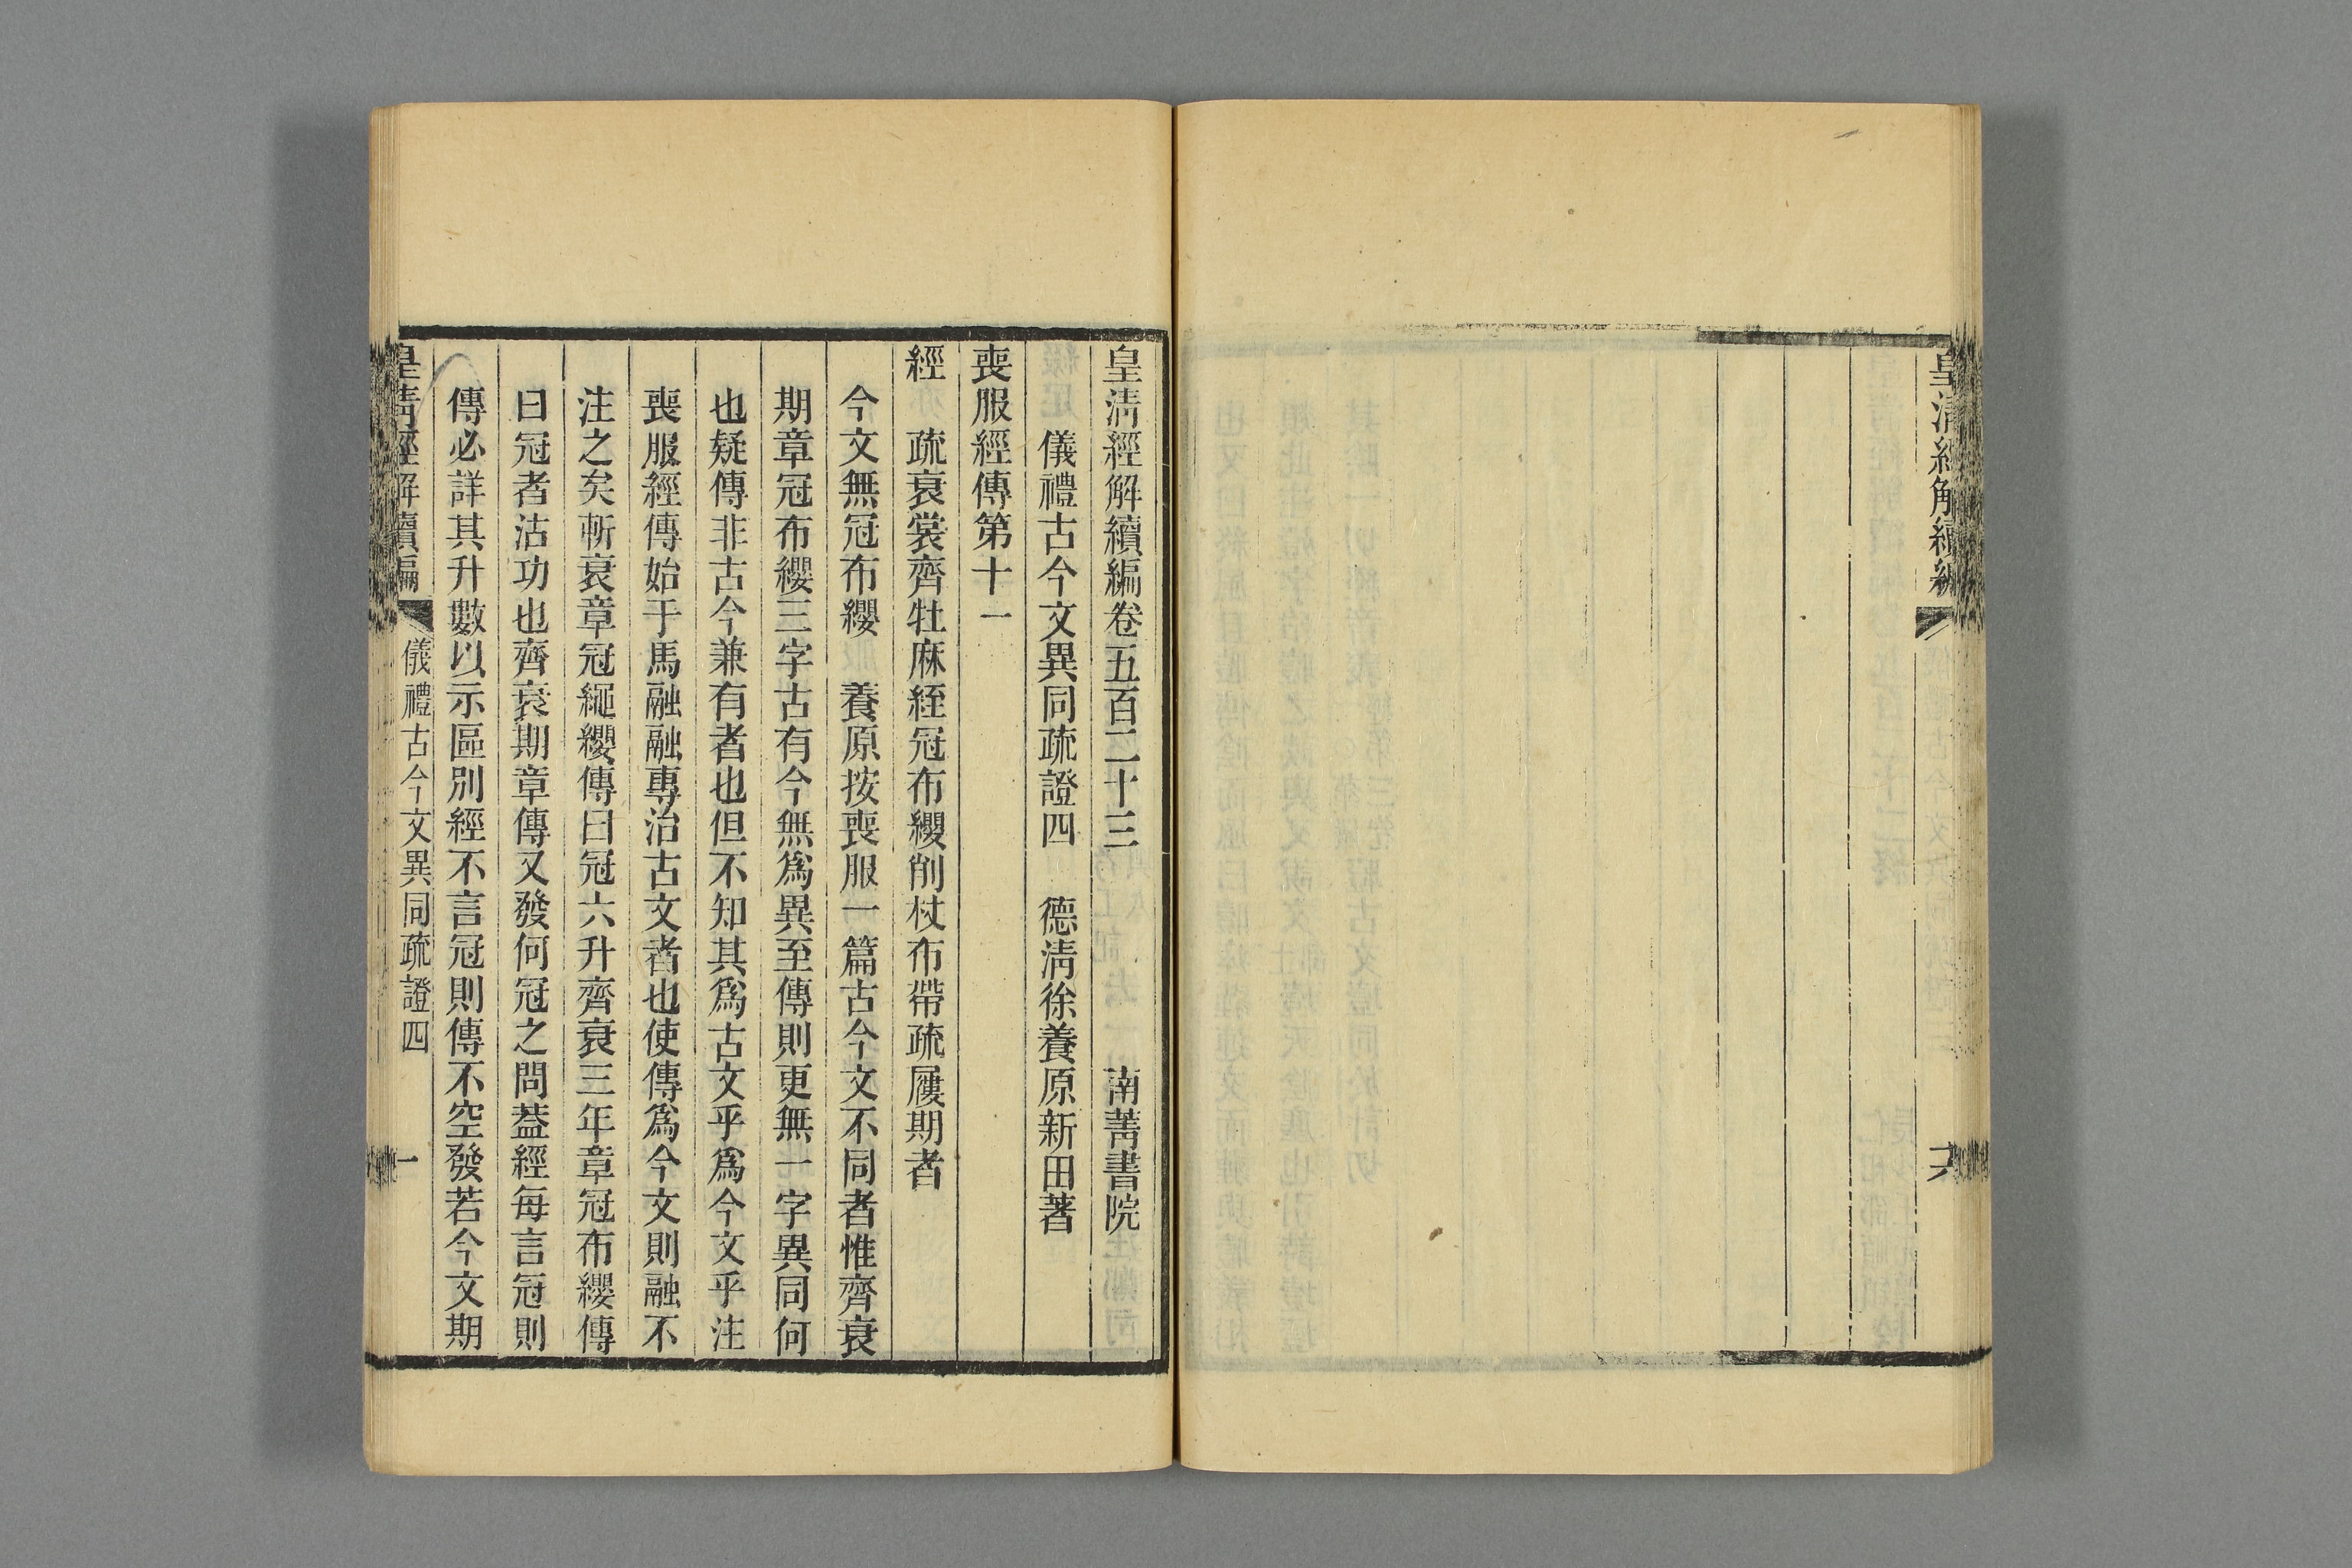 皇清經解續編
六
皇清經解續編卷五百二十三　南菁書院
儀禮古今文異同疏證四　德清徐養原新田著
喪服經傳第十一
經　疏衰裳齊牡麻絰冠布纓削杖布帶疏屨期者
今文無冠布纓　養原按喪服一篇古今文不同者惟齊衰
期章冠布纓三字古有今無爲異至傳則更無一字異同何
也疑傳非古今兼有者也但不知其爲古文乎爲今文乎注
喪服經傳始于馬融融專治古文者也使傳爲今文則融不
注之矣斬衰章冠繩纓傳曰冠六升齊衰三年章冠布纓傳
曰冠者沽功也齊衰期章傳又發何冠之問葢經每言冠則
傳必詳其升數以示區別經不言冠則傳不空發若今文期
皇清經解續編　儀禮古今文異同疏證四　一